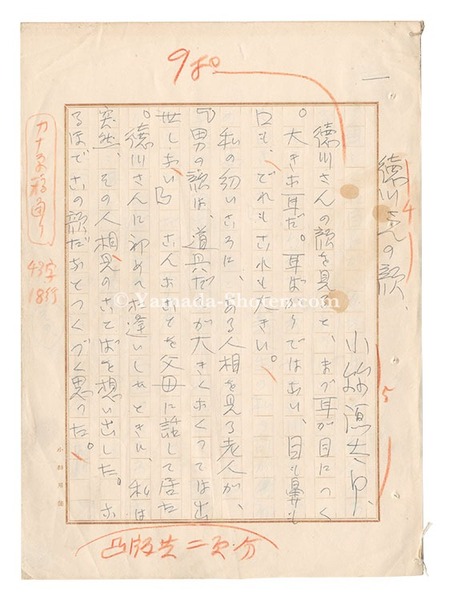 一
9ポ。
4
徳川さんの顔
5
小絲源太郎
徳川さんの顔を見ると、まづ耳が目につく
。大きな耳だ。耳ばかりではない、目も鼻も
口も、どれもこれも大きい。
私の幼いころに、ある人相を見る老人が、
「男の顔は、道具だてが大きくなくつては出
世しない」 こんなことを父母に話して居た
。徳川さんに初めてお逢いしたときに、私は
突然、その人相見のことばを想い出した。な
るほどこの顔だなとつくづく思つた。
カナ原稿通り
43字
18行
凸版共二頁分
© Yamada-Shoten.com